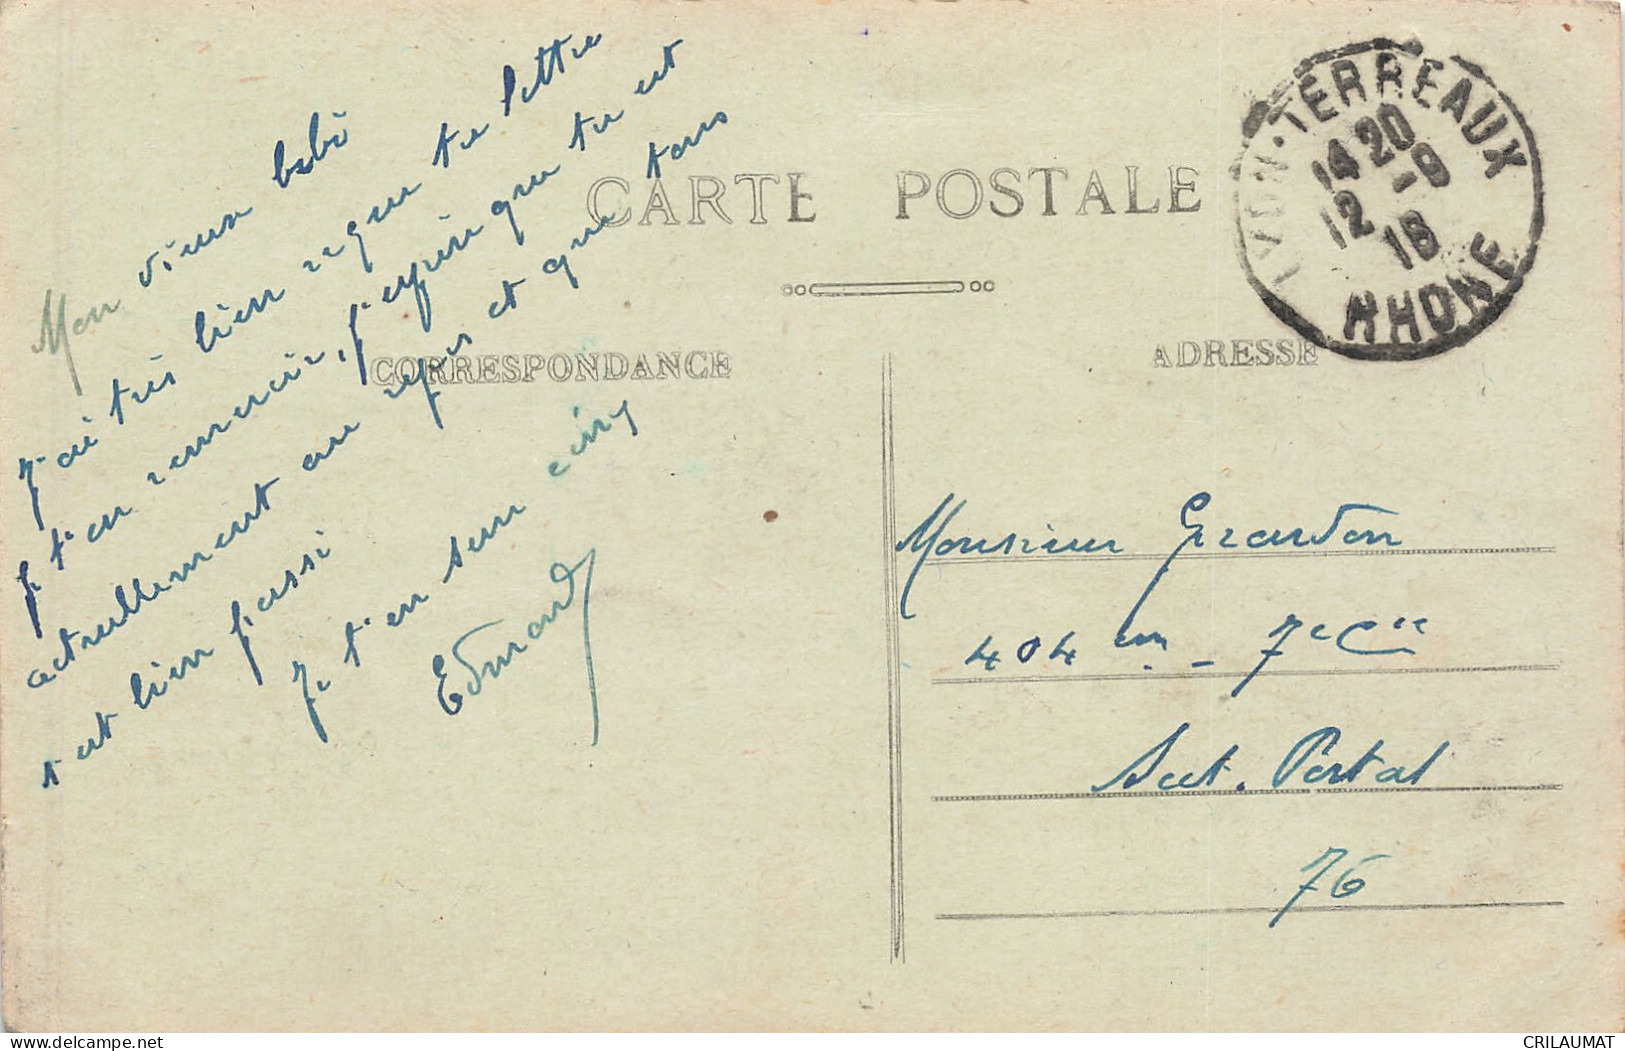 CARTE POSTALE
CORRESPONDANCE
Mon vieux bébé
J'ai très bien reçu ta lettre
je t'en remercie, j'espère que tu est
actuellement au repos et que tous
s'est bien passé
Je t'en serre cinq
Edmond
LYON-TERREAUX
14 20
12 -9
18
RHONE
ADRESSE
Monsieur Girardon
404 em - 7e Cie
Sect. Postal
76
CRILAUMAT